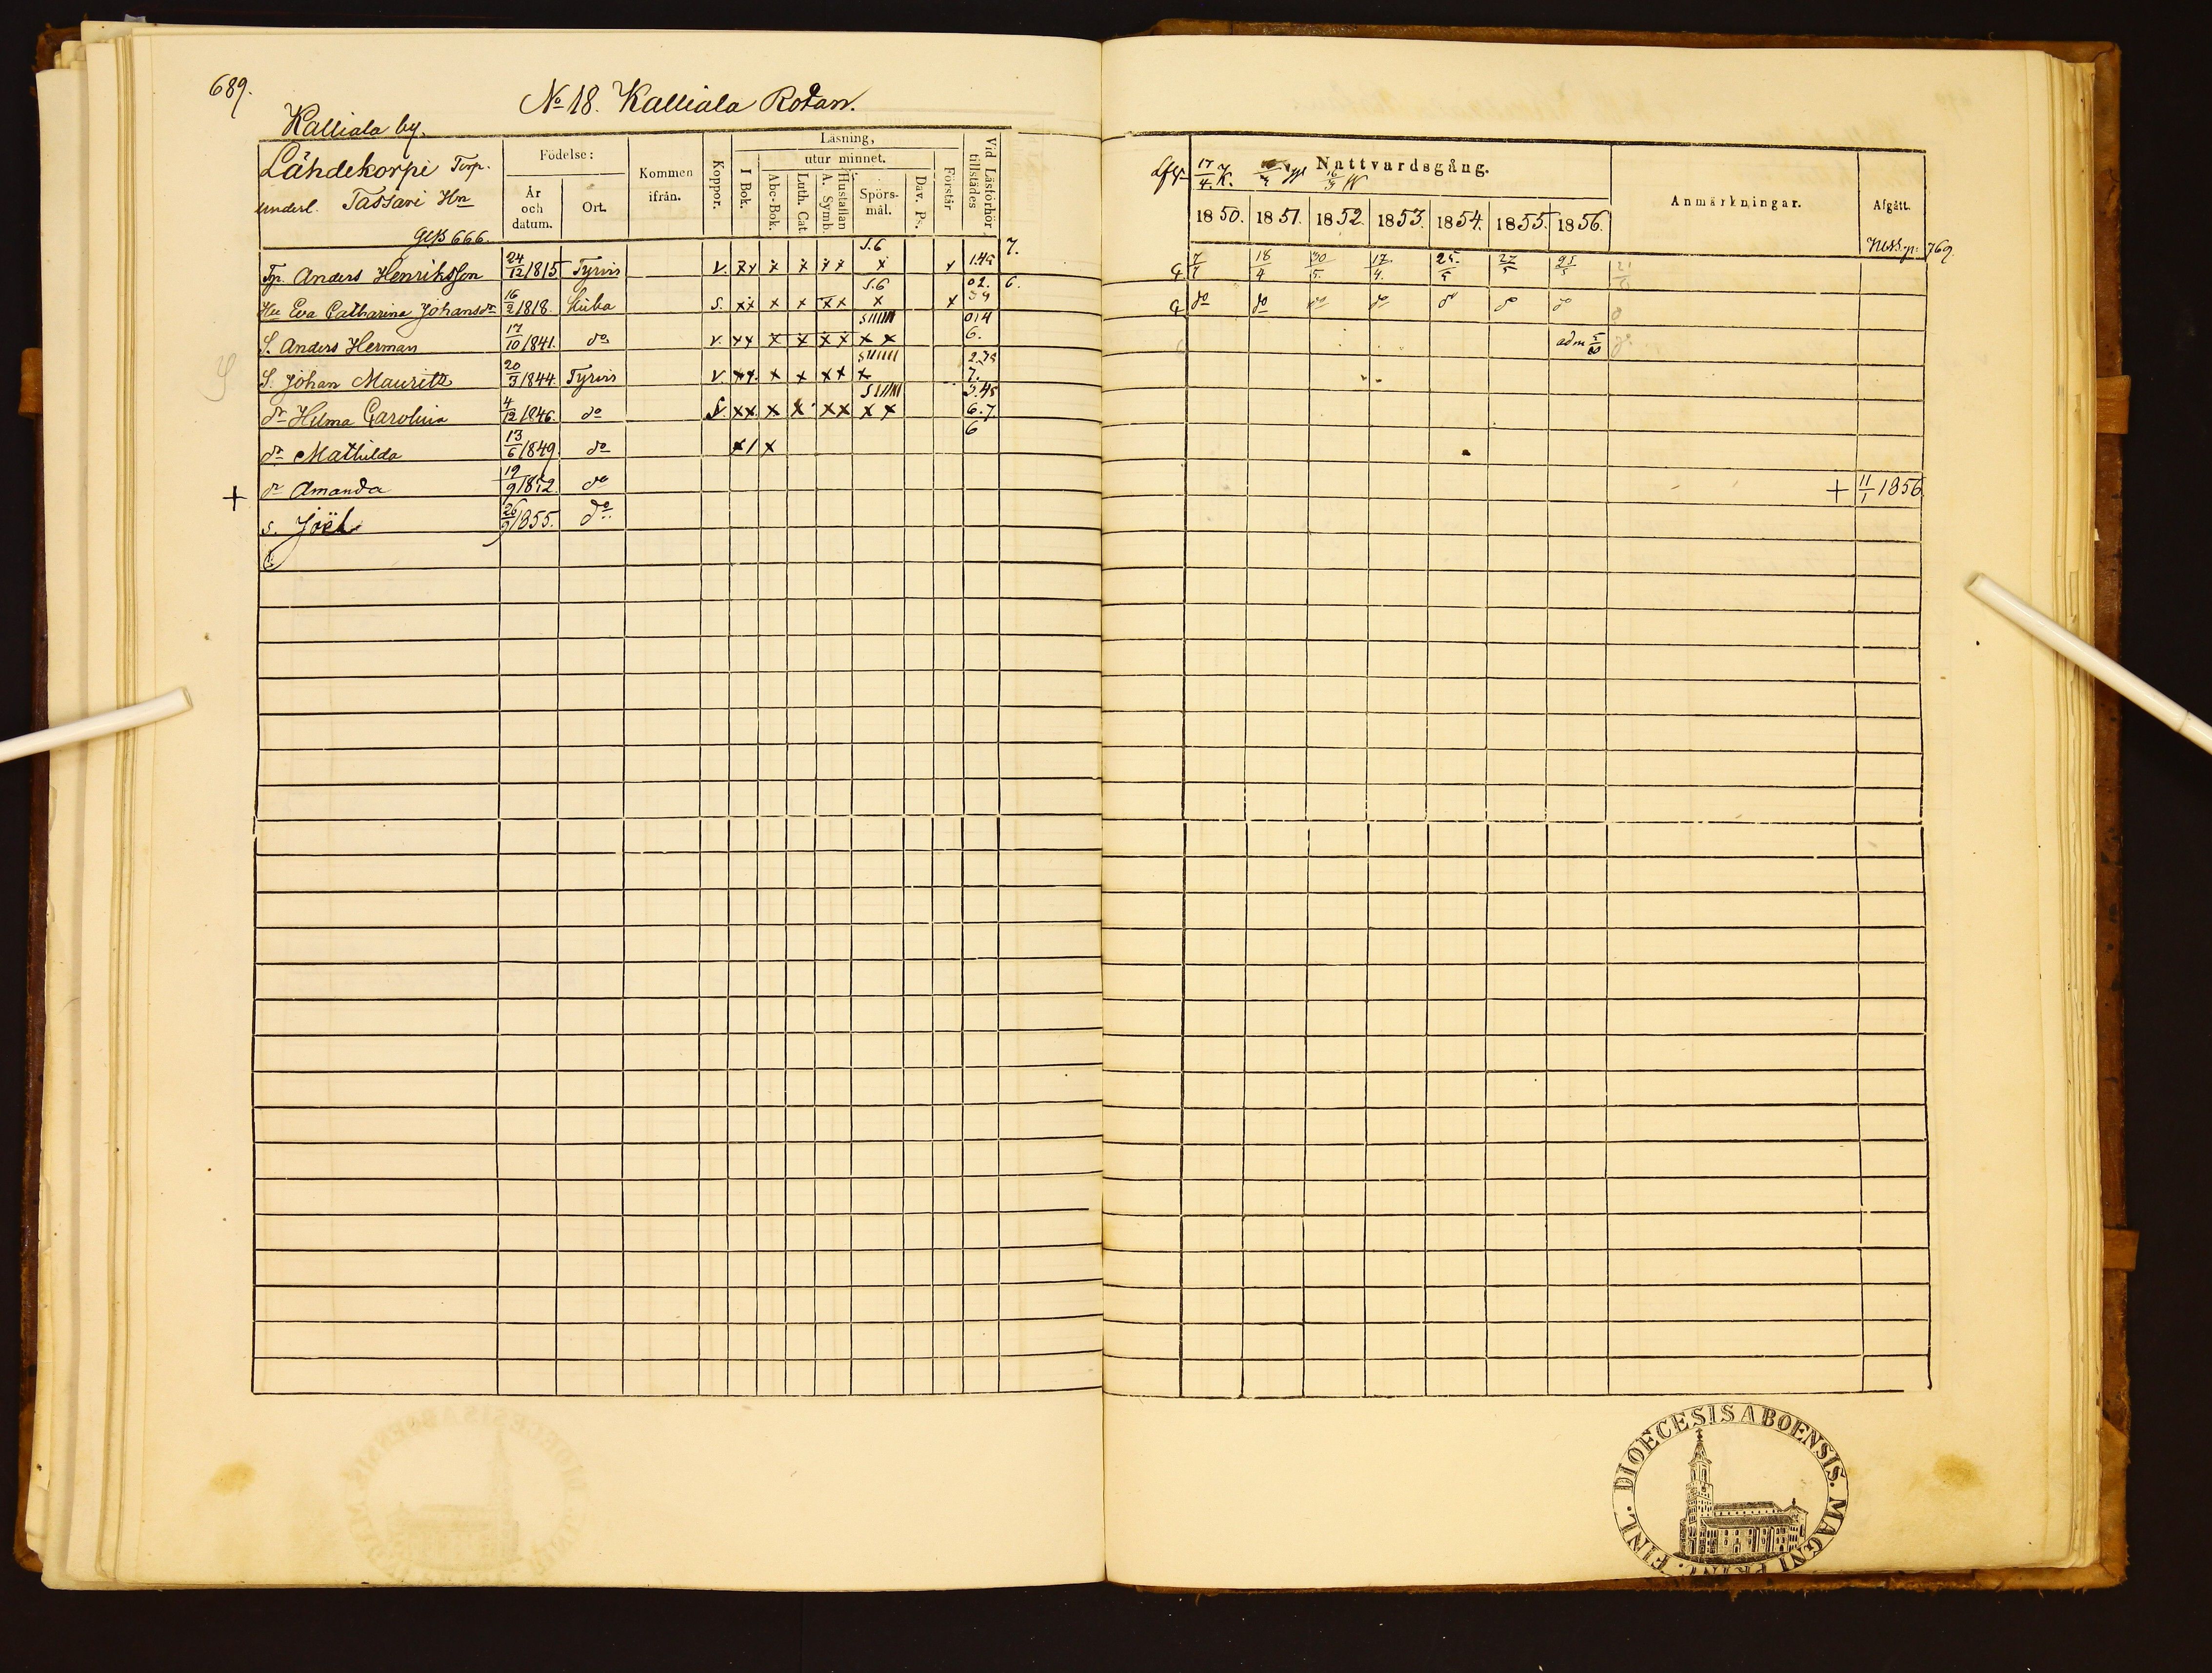 689.
No 18. Kalliala Rotan.
Kalliala by.
Lähdekorpi Torp.
underl. Tassari Hn
GKB 666.
Födelse:
År och datum.
Ort.
Kommen ifrån.
Koppor.
Läsning,
I Bok.
utur minnet.
Abc-Bok.
Luth. Cat.
Hustaflan A. Symb.
Spörs-mål.
Dav. Ps.
Förstår
Vid Läsförhör tillstädes
Nattvardsgång.
17/4 K.
1850. 1851. 1852. 1853. 1854. 1855. 1856.
Anmärkningar.
Afgått.
769
Tp. Anders Henriksson 24/12 1815 Tyrvis v. xx x x xx S.6 x x 1.45 7. 7/4 18/4 30/5. 17/4. 25/5 27/5 25/5
Hu Eva Catharina Johansdr 16/2 1818. Kiika S. xx x x xx S.6 x x 02. 34 6. do do do do do do do
S. Anders Herman 17/10 1841. do v. xx x x xx x x 014 6. adm 5/60
S. Johan Mauritz 20/3 1844. Tyrvis v. xx x x xx x 7.
dr Hilma Carolina 4/12 1846. do v. xx x x xx x x 3.45 6.7
dr Mathilda 13/6 1849 do x/ x 6
+ dr Amanda 19/9 1852. do + 11/1 1856
s. Joël 26/9 1855. do
DIOECESIS ABOENSIS. MAGNI PRINC. FINL.